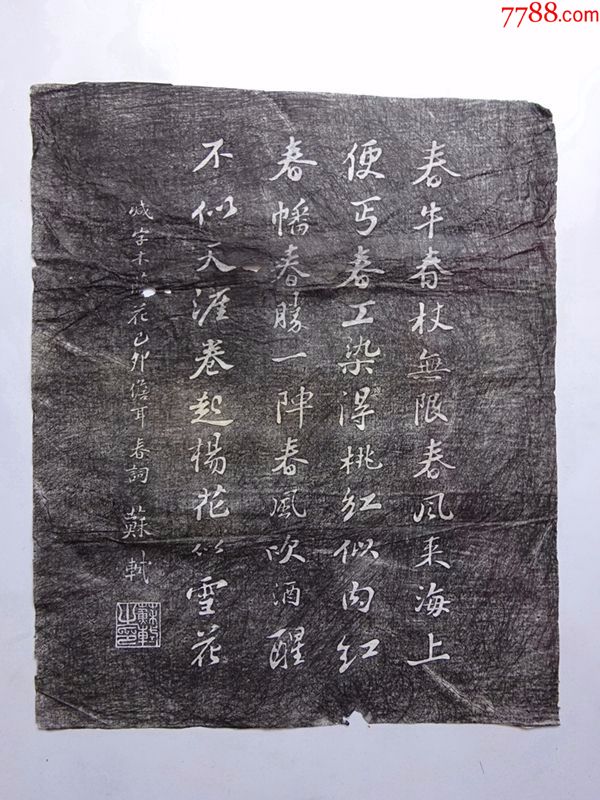 7788.com
春牛春杖無限春風来海上
便丐春工染得桃紅似肉紅
春幡春勝一陣春風吹酒醒
不似天涯卷起楊花似雪花
減字木蘭花己卯儋耳春詞 蘇軾
蘇軾之印